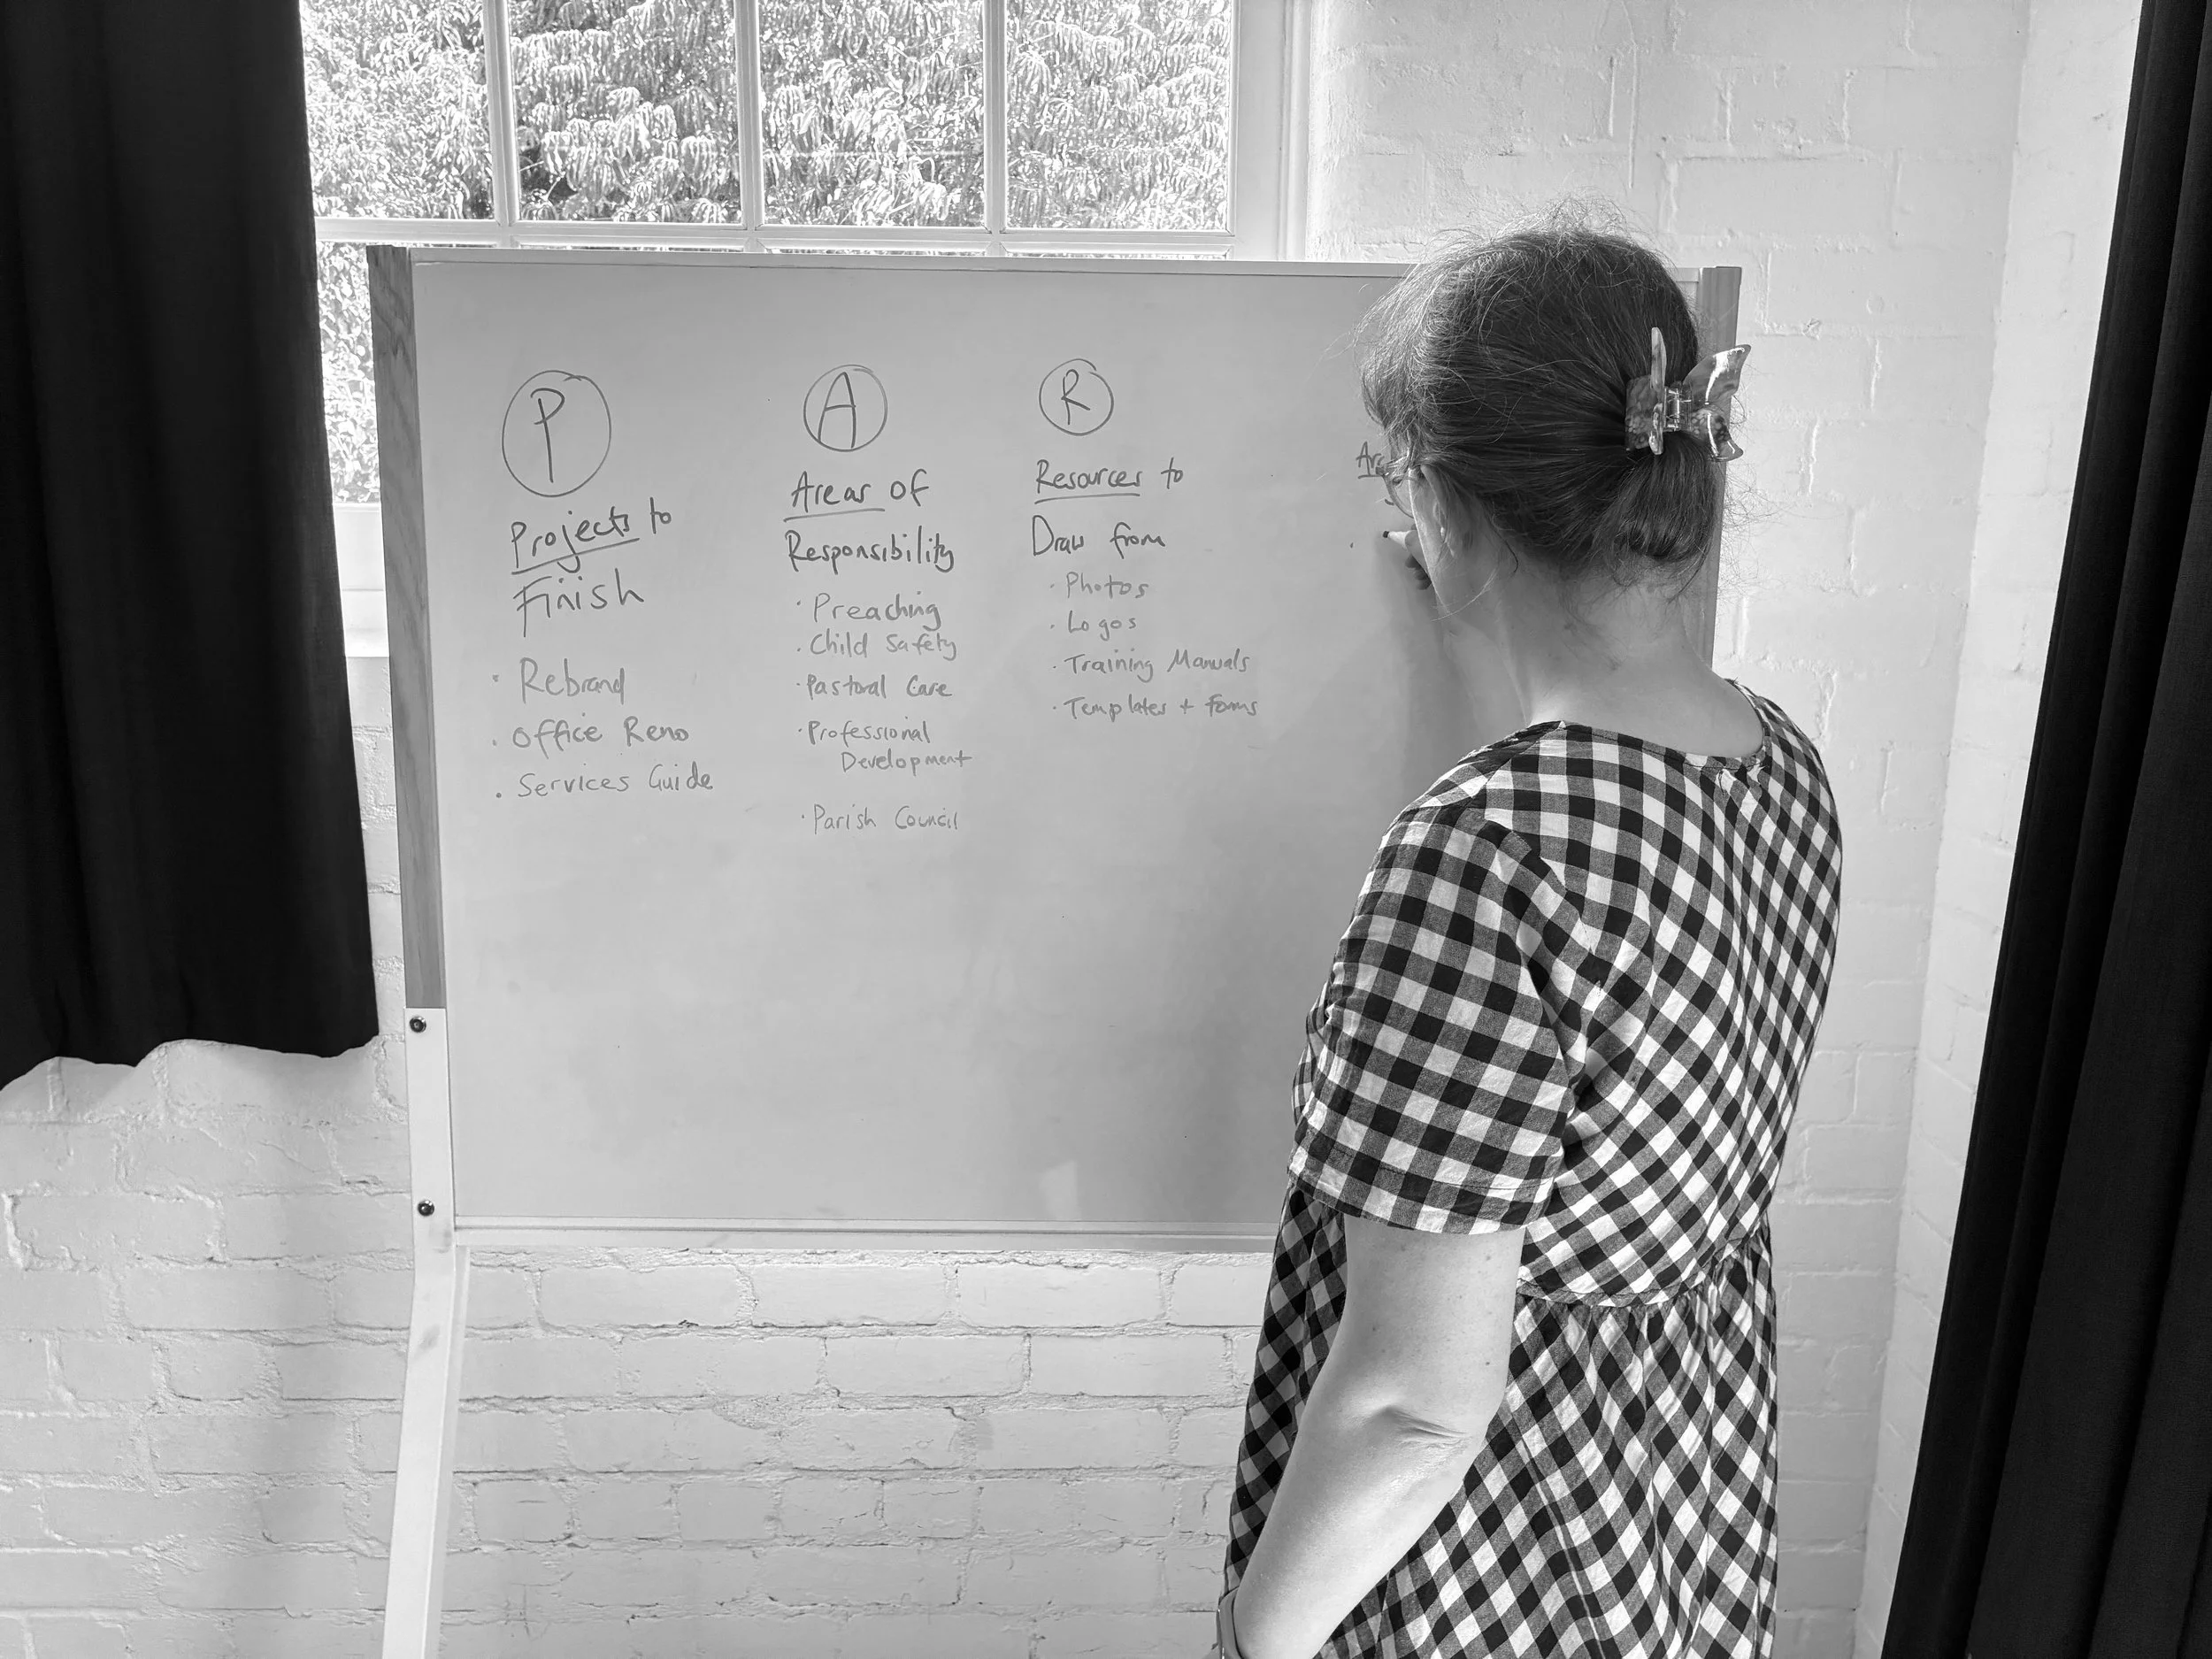 P
Projects to
Finish
· Rebrand
· Office Reno
· Services Guide
A
Areas of
Responsibility
· Preaching
· Child Safety
· Pastoral Care
· Professional
Development
· Parish Council
R
Resources to
Draw from
· Photos
· Logos
· Training Manuals
· Templates + Forms